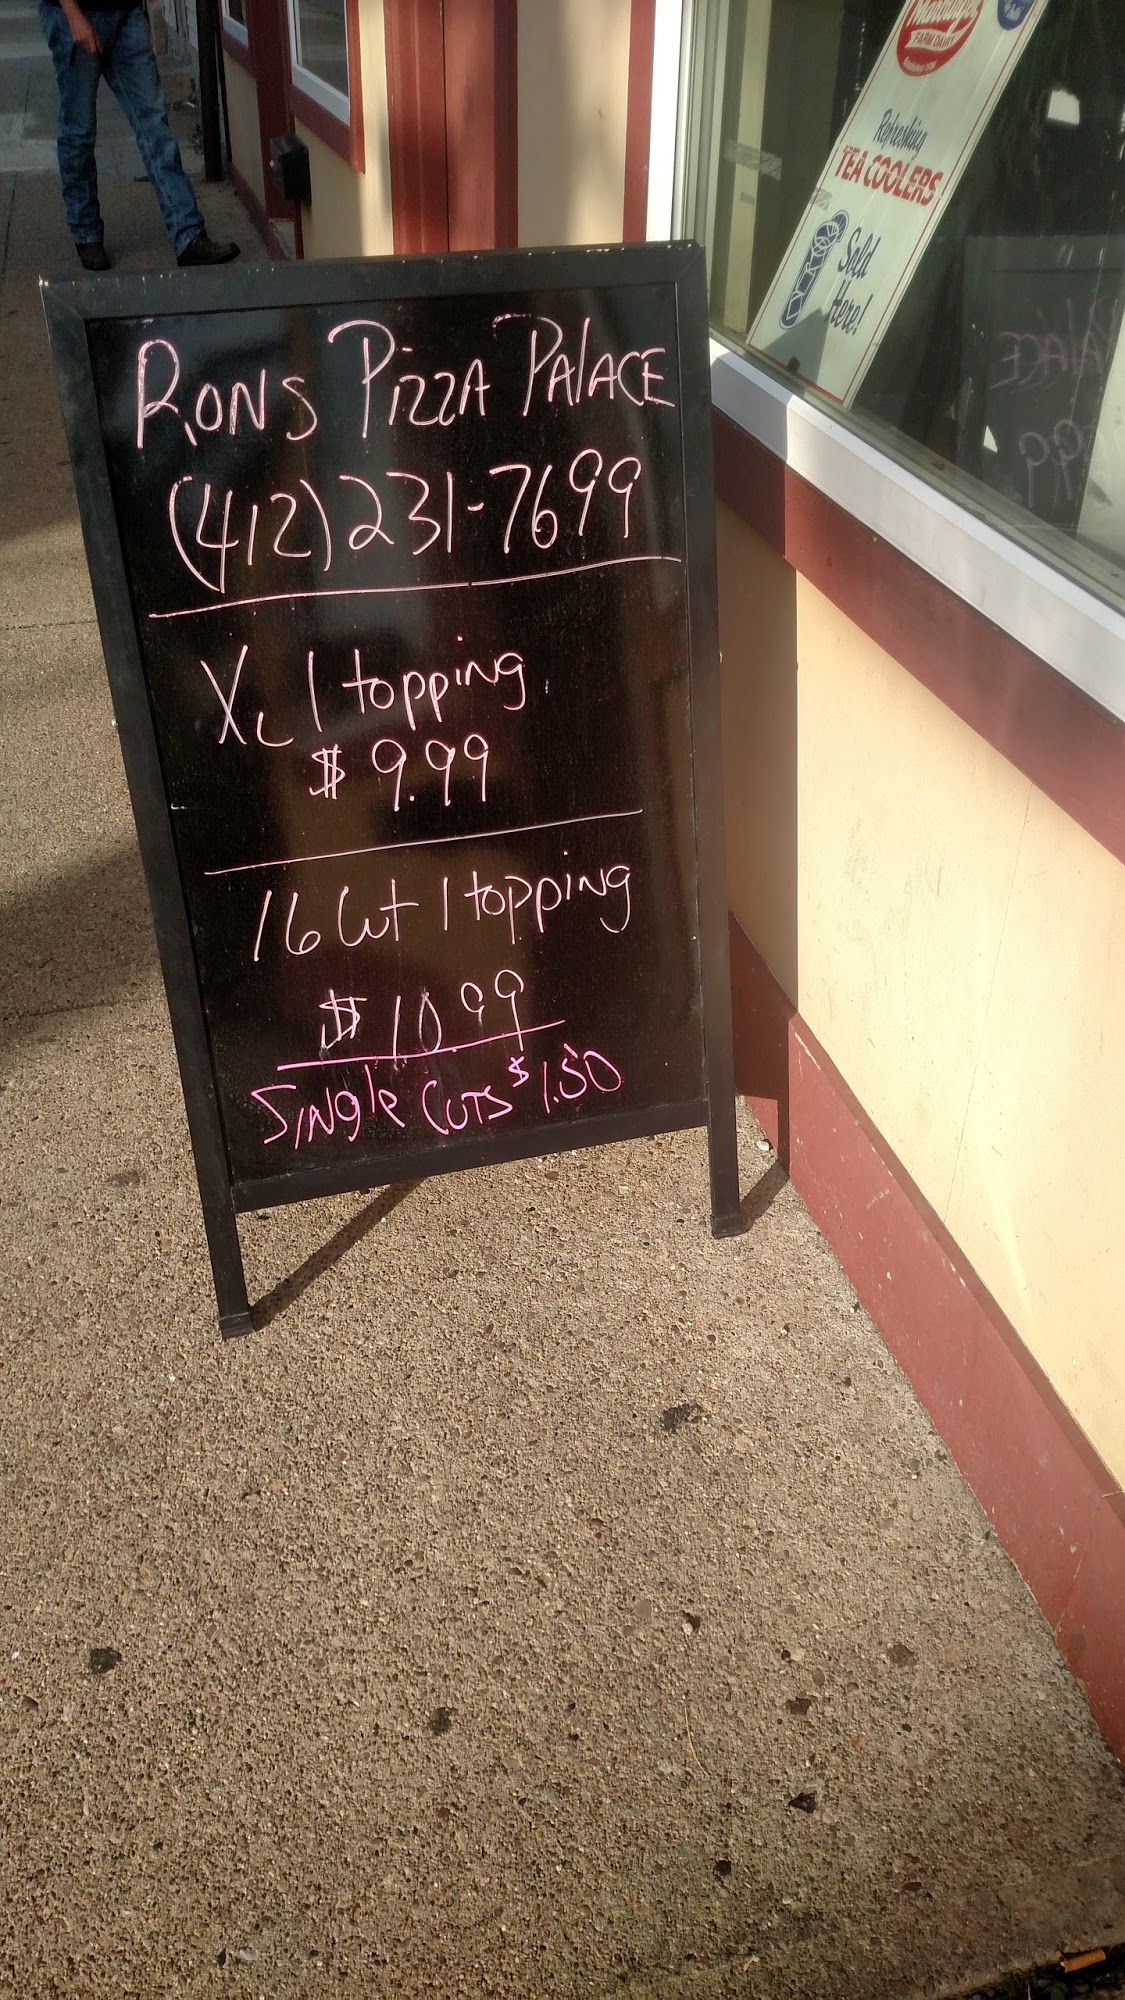 RONS PIZZA PALACE
(412) 231-7699
XL 1 topping
$ 9.99
16 Cut 1 topping
$ 10.99
SINGle CUTS $1.50
FARM DAIRY
Refreshing
TEA COOLERS
Sold
Here!
PALACE